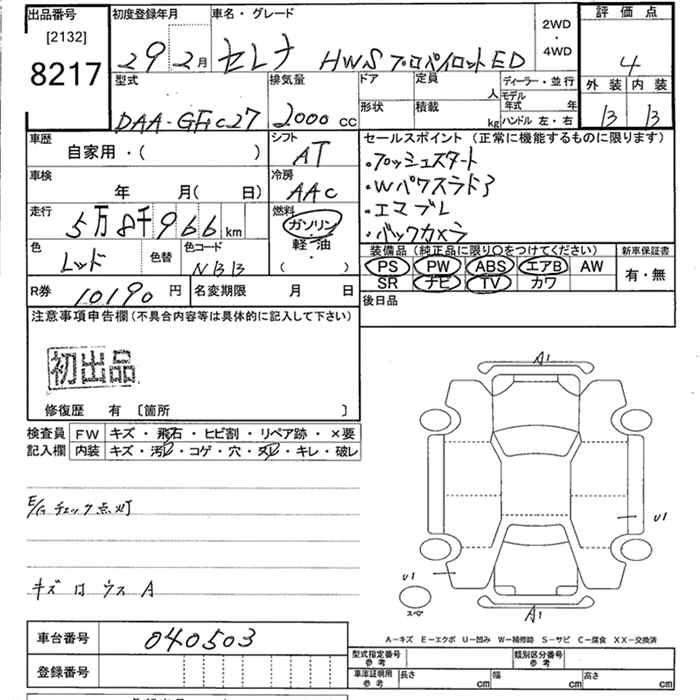 出品番号
[2132]
8217
初度登録年月
29年2月
車名・グレード
セレナ HWS プロパイロットED
2WD
・
4WD
評価点
4
外装 内装
B B
型式
DAA-GFC27
排気量
2000 CC
ドア
形状
定員
人
積載
kg
ディーラー・並行
モデル年式 年
ハンドル 左・右
車歴
自家用・( )
シフト
AT
車検
年 月( 日)
冷房
AAC
走行
5万8千966km
燃料
ガソリン
軽油
・
( )
色
レッド
色替
色コード
NBB
セールスポイント (正常に機能するものに限ります)
・プッシュスタート
・Wパワスラドア
・エマブレ
・バックカメラ
装備品 (純正品に限り○をつけてください)
PS PW ABS エアB AW
SR ナビ TV カワ
新車保証書
有・無
R券
10190 円
名変期限 月 日
後日品
注意事項申告欄(不具合内容等は具体的に記入して下さい)
初出品
修復歴 有 〔箇所 〕
検査員記入欄
FW キズ・飛石・ヒビ割・リペア跡・×要
内装 キズ・汚・コゲ・穴・・キレ・破レ
E/G チェック点灯
キズ ウス A
A1
U1
U1
スペア
A1
A-キズ E-エクボ U-凹み W-補修跡 S-サビ C-腐食 XX-交換済
車台番号
040503
登録番号
型式指定番号
参考
類別区分番号
参考
車庫証明用
参考
長さ cm
幅 cm
高さ cm